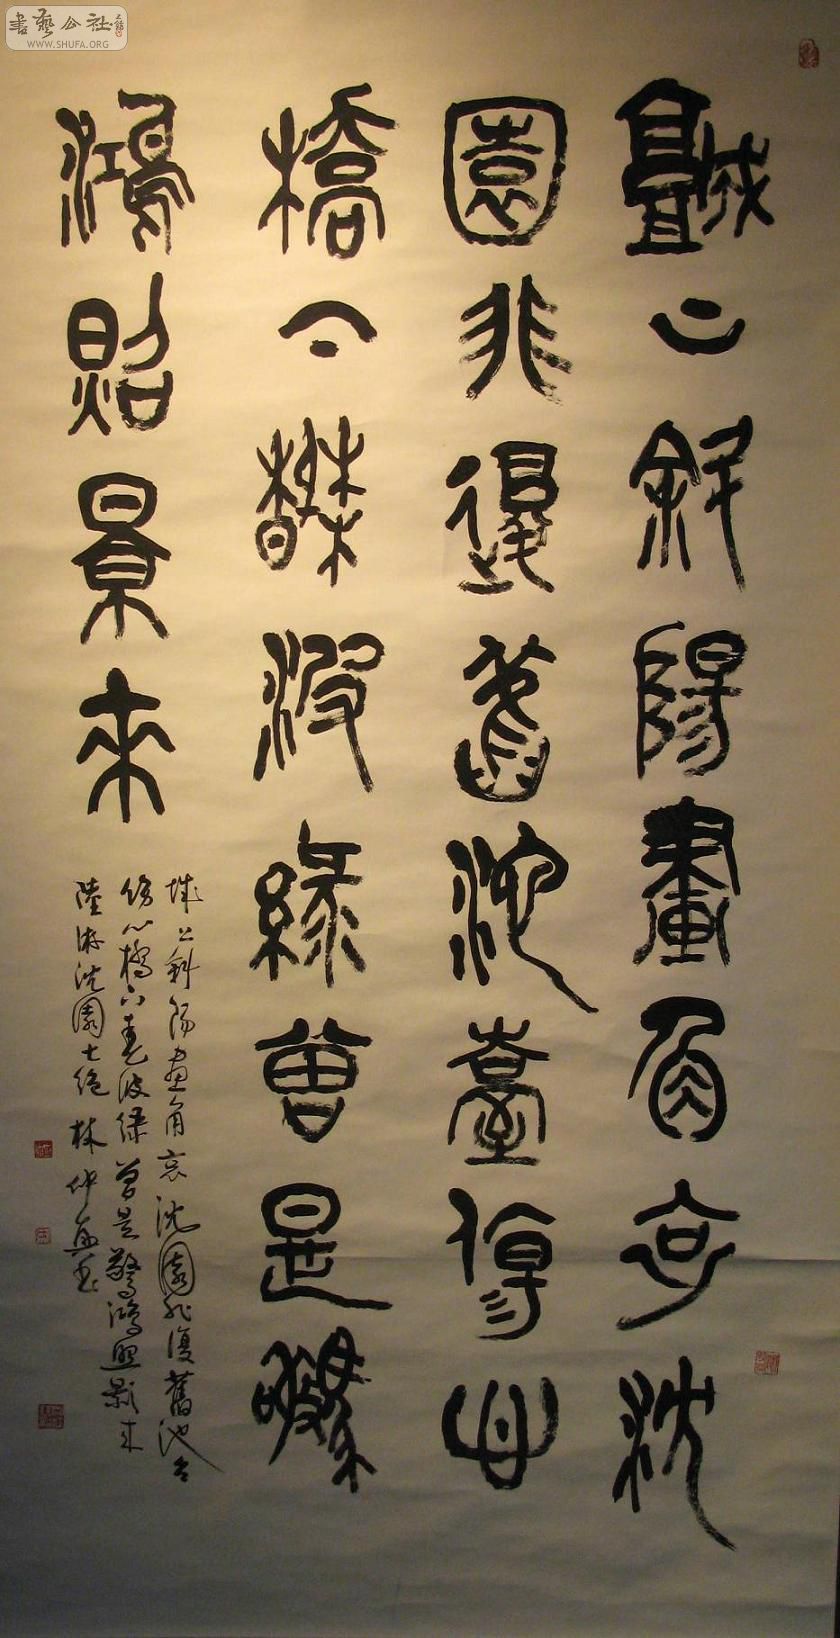 城上斜陽畫角哀沈
園非復舊池臺傷心
橋下春波綠曾是驚
鴻照景來
城上斜陽畫角哀沈園非復舊池台
傷心橋下春波綠曾是驚鴻照影來
陸游沈園七絕林仲
書藝公社
WWW.SHUFA.ORG